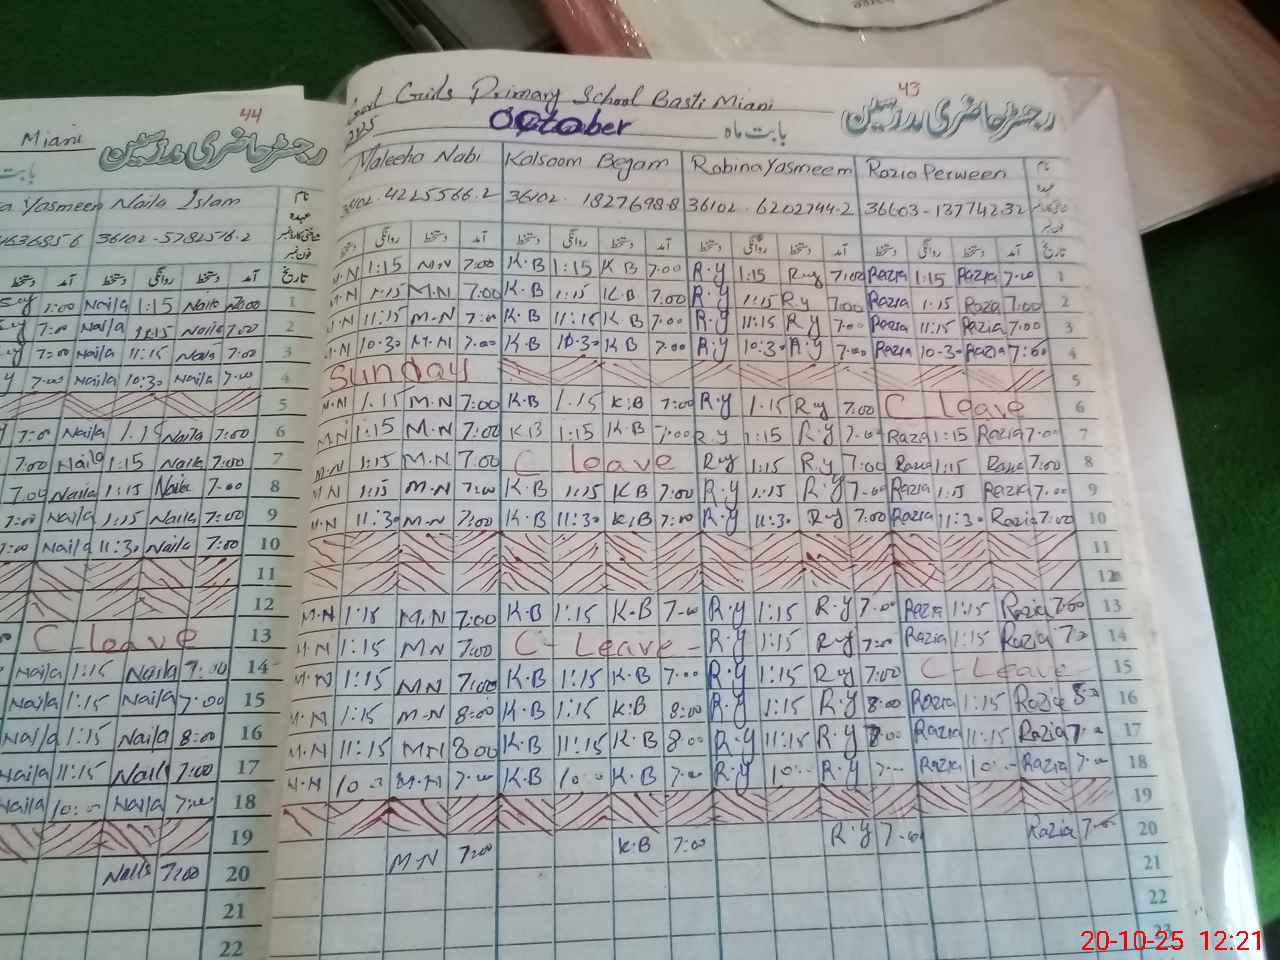 43
Govt Girls Primary School Basti Miani
رجسٹر حاضری مدرسین
2025
October
بابت ماہ
Maleeha Nabi Kalsoom Begam Robina Yasmeem Razia Perween نام
عہدہ
36102 - 4225566-2 36102 - 1827698-8 36102 - 6202744-2 36603 - 13774232
دستخط روانگی دستخط آمد دستخط روانگی دستخط آمد دستخط روانگی دستخط آمد دستخط روانگی دستخط آمد تاریخ
M.N 1:15 M.N 7:00 K.B 1:15 K B 7:00 R.y 1:15 R.y 7:00 Razia 1:15 Razia 7:00 1
M.N 1:15 M.N 7:00 K.B 1:15 K.B 7:00 R.y 1:15 R.y 7:00 Razia 1:15 Razia 7:00 2
M.N 11:15 M.N 7:00 K.B 11:15 K B 7:00 R.y 11:15 R.y 7:00 Razia 11:15 Razia 7:00 3
M.N 10:30 M.N 7:00 K.B 10:30 K B 7:00 R.y 10:30 R.y 7:00 Razia 10:30 Razia 7:00 4
Sunday 5
M.N 1:15 M.N 7:00 K.B 1:15 K.B 7:00 R.y 1:15 R.y 7:00 C leave 6
M.N 1:15 M.N 7:00 K B 1:15 K.B 7:00 R.y 1:15 R.y 7:00 Razia 1:15 Razia 7:00 7
M.N 1:15 M.N 7:00 C leave R.y 1:15 R.y 7:00 Razia 1:15 Razia 7:00 8
M N 1:15 M.N 7:00 K.B 1:15 K B 7:00 R.y 1:15 R.y 7:00 Razia 1:15 Razia 7:00 9
M.N 11:30 M.N 7:00 K.B 11:30 K.B 7:00 R.y 11:30 R.y 7:00 Razia 11:30 Razia 7:00 10
11
12
M.N 1:15 M.N 7:00 K.B 1:15 K.B 7:00 R.y 1:15 R.y 7:00 Razia 1:15 Razia 7:00 13
M.N 1:15 M N 7:00 C - Leave - R.y 1:15 R.y 7:00 Razia 1:15 Razia 7:00 14
M.N 1:15 M N 7:00 K.B 1:15 K.B 7:00 R.y 1:15 R.y 7:00 C - Leave - 15
M.N 1:15 M-N 8:00 K.B 1:15 K.B 8:00 R.y 1:15 R.y 8:00 Razia 1:15 Razia 8:00 16
M.N 11:15 M N 8:00 K.B 11:15 K.B 8:00 R.y 11:15 R.y Razia 11:15 Razia 7:00 17
M.N 10:00 M.N 7:00 K.B 10:00 K.B 7:00 R.y 10:00 R.y 7:00 Razia 10:00 Razia 7:00 18
19
M.N 7:00 K.B 7:00 R.y 7:00 Razia 7:00 20
21
22
23
44
Miani رجسٹر حاضری مدرسین
Yasmeen Naila Islam نام
عہدہ
36102 - 5782516-2
دستخط آمد دستخط روانگی دستخط آمد تاریخ
7:00 Naila 1:15 Naila 7:00 1
7:00 Naila 1:15 Naila 7:00 2
7:00 Naila 11:15 Naila 7:00 3
7:00 Naila 10:30 Naila 7:00 4
5
7:00 Naila 1:15 Naila 7:00 6
7:00 Naila 1:15 Naila 7:00 7
7:00 Naila 1:15 Naila 7:00 8
7:00 Naila 1:15 Naila 7:00 9
7:00 Naila 11:30 Naila 7:00 10
11
12
C - leave 13
Naila 1:15 Naila 7:00 14
Naila 1:15 Naila 7:00 15
Naila 1:15 Naila 8:00 16
Naila 11:15 Naila 7:00 17
Naila 10:00 Naila 7:00 18
19
Naila 7:00 20
21
22
20-10-25 12:21